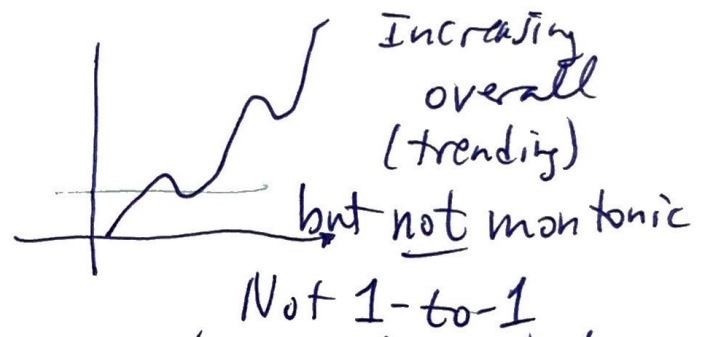 Increasing
overall
(trending)
but not montonic
Not 1-to-1